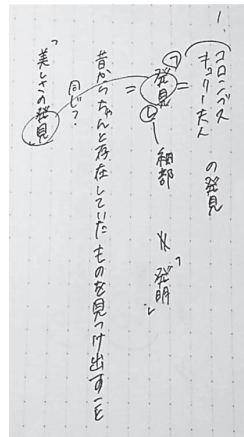 1.
コロンブス
キュリー夫人 の発見
=「発見」 細部 ≠ 「発明」
=
昔からちゃんと存在していたものを見つけ出すこと
同じ？
「美しさの発見